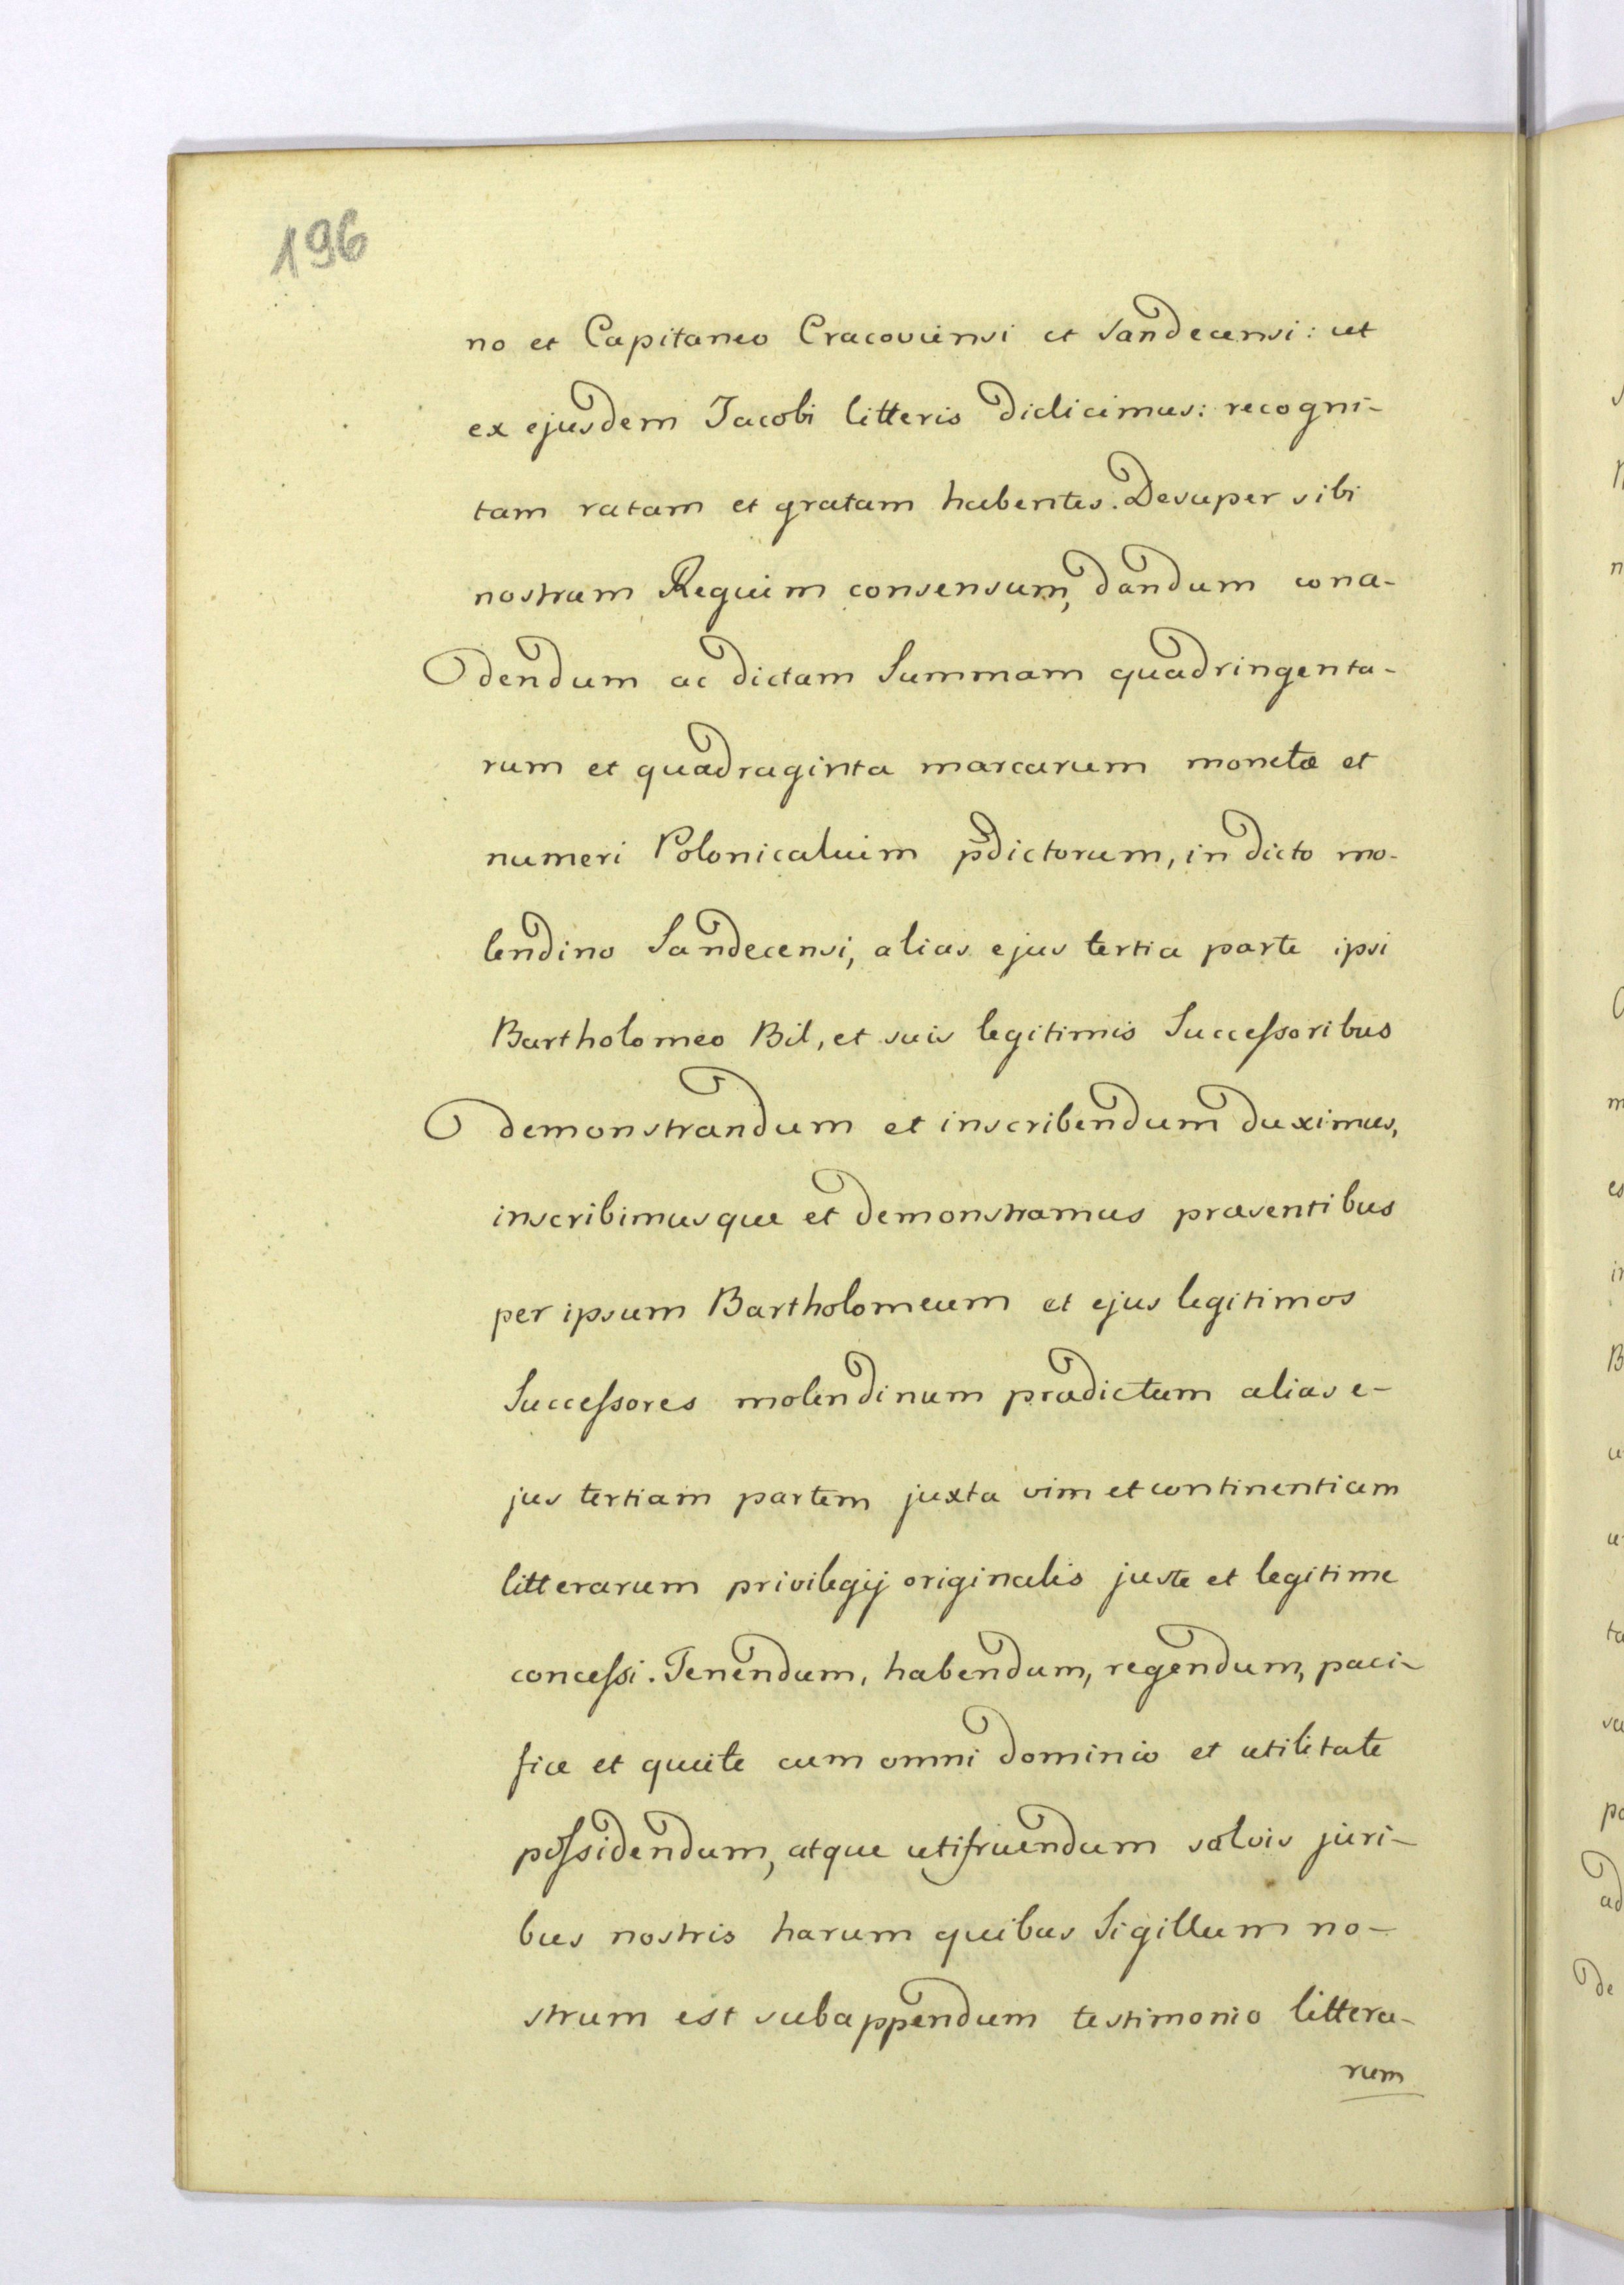 196
no et Capitaneo Cracoviensi et Sandecensi: ut
ex ejusdem Jacobi litteris didicimus: recogni-
tam ratam et gratam habentes. Desuper sibi
nostrum Regium consensum, dandum conce-
dendum ac dictam Summam quadringenta-
rum et quadraginta marcarum monetæ et
numeri Polonicalium pdictorum, in dicto mo-
lendino Sandecensi, alias ejus tertia parte ipsi
Bartholomeo Bil, et suis legitimis Successoribus
demonstrandum et inscribendum duximus,
inscribimusque et demonstramus præsentibus
per ipsum Bartholomeum et ejus legitimos
Successores molendinum prædictum alias e-
jus tertiam partem juxta vim et continentiam
litterarum privilegij originalis juste et legitime
concessi. Tenendum, habendum, regendum, paci-
fice et quiete cum omni dominio et utilitate
possidendum, atque utifruendum salvis juri-
bus nostris harum quibus Sigillum no-
strum est subappendum testimonio littera-
rum